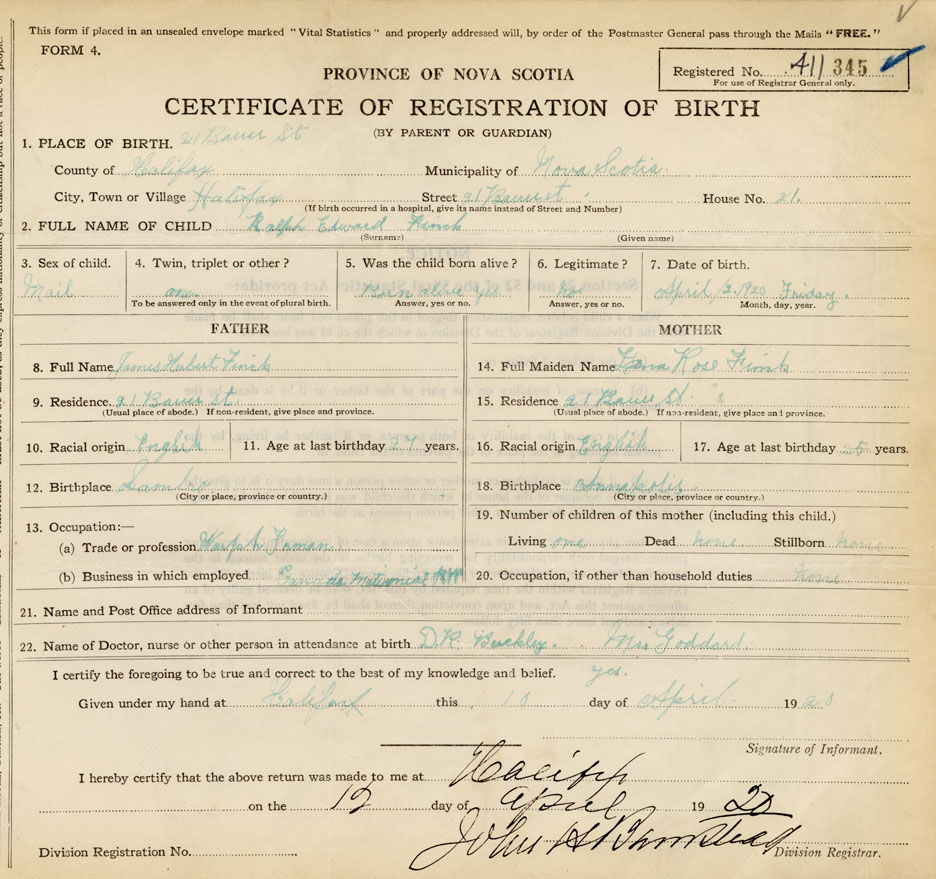 This form if placed in an unsealed envelope marked "Vital Statistics" and properly addressed will, by order of the Postmaster General pass through the Mails "FREE."
FORM 4.
PROVINCE OF NOVA SCOTIA
Registered No. 411 345
For use of Registrar General only.
CERTIFICATE OF REGISTRATION OF BIRTH
(BY PARENT OR GUARDIAN)
1. PLACE OF BIRTH. 21 Bauer St
County of Halifax Municipality of Nova Scotia
City, Town or Village Halifax Street 21 Bauer St. House No. 21.
(If birth occurred in a hospital, give its name instead of Street and Number)
2. FULL NAME OF CHILD Ralph Edward Finck
(Surname) (Given name)
3. Sex of child. 4. Twin, triplet or other? 5. Was the child born alive? 6. Legitimate? 7. Date of birth.
Mail one Born alive yes No April 1920 Friday.
To be answered only in the event of plural birth. Answer, yes or no. Answer, yes or no. Month, day, year.
FATHER MOTHER
8. Full Name James Hubert Finck 14. Full Maiden Name Rose Finck
9. Residence. 21 Bauer St. 15. Residence 21 Bauer St.
(Usual place of abode.) If non-resident, give place and province. (Usual place of abode.) If non-resident, give place and province.
10. Racial origin English 11. Age at last birthday 27 years. 16. Racial origin English 17. Age at last birthday 25 years.
12. Birthplace Sambro 18. Birthplace Annapolis
(City or place, province or country.) (City or place, province or country.)
13. Occupation:— 19. Number of children of this mother (including this child.)
(a) Trade or profession Living one Dead none Stillborn none
(b) Business in which employed 20. Occupation, if other than household duties none
21. Name and Post Office address of Informant
22. Name of Doctor, nurse or other person in attendance at birth D.R. Buckley. Mrs Goddard.
I certify the foregoing to be true and correct to the best of my knowledge and belief. yes.
Given under my hand at Halifax this 10 day of April 1920
Signature of Informant.
I hereby certify that the above return was made to me at Halifax
on the 12 day of April 1920
John H Barnstead
Division Registration No. Division Registrar.